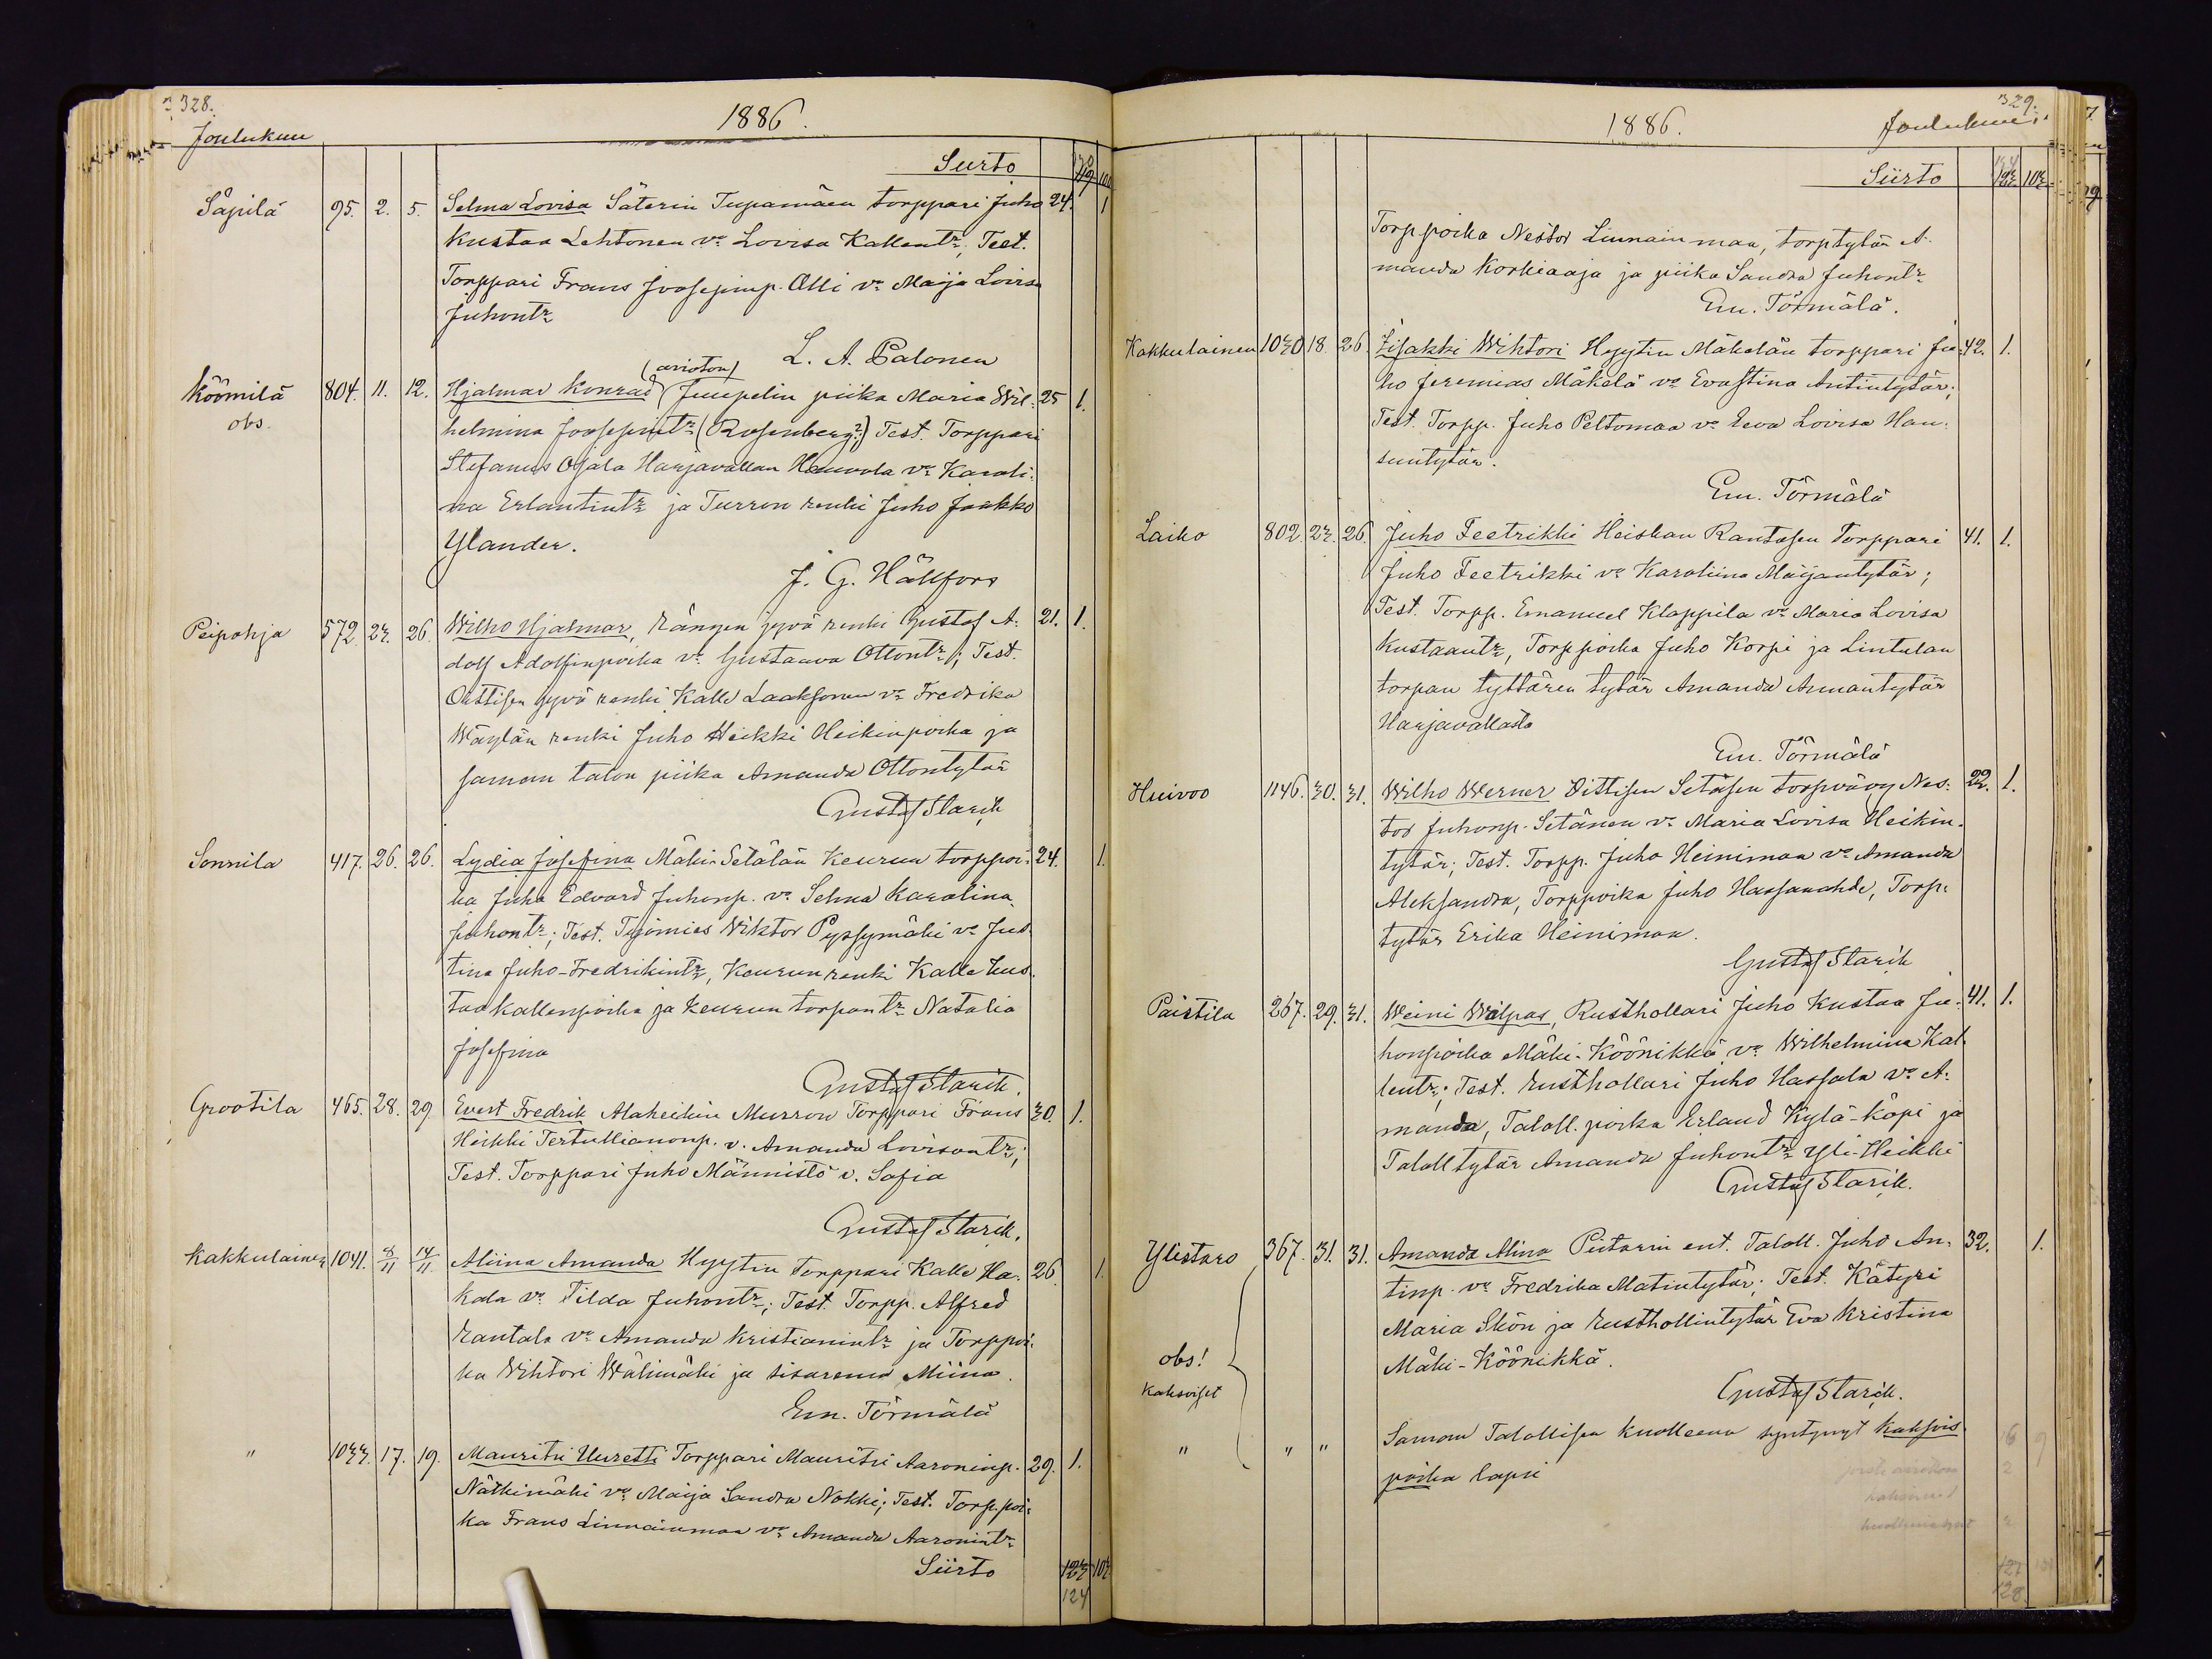 328.
1886.
Joulukuu
Siirto
Säpilä 95. 2. 5. Selma Lovisa Säterin Tupamäen torppari Juho 24. 1
Kustaa Lehtonen vo Lovisa Kallentr, Test.
Torppari Frans Joosepinp. Olli vo Maija Lovisa
Juhontr
L. A. Palonen
(avioton)
Köömilä 804. 11. 12. Hjalmar Konrad Juupelin piika Maria Wil- 25 1.
obs. helmina Joosepintr (Rosenberg?) Test. Torppari
Stefanus Ojala Harjavallan vo Karoli-
na Erlantintr ja Turron renki Juho Jaakko
Ylander.
J. G. Hällfors
Peipohja 572. 23. 26. Wilho Hjalmar, jyvä renki Gustaf A- 21. 1.
dolf Adolfinpoika vo Gustaava Ottontr; Test.
Oittisen jyvä renki Kalle Laaksonen vo Fredrika
Wäylän renki Juho Heikki Heikinpoika ja
saman talon piika Amanda Ottontytär
Gustaf Starck
Sonnila 417. 26. 26. Lydia Josefina Mäki-Setälän Keurun torppoi- 24. 1.
ka Juho Edvard Juhonp. vo Selma Karolina
Juhontr; Test. Työmies Wiktor Pyssymäki vo Jus-
tina Juho-Fredrikintr, Keurun renki Kalle Kus-
taa Kallenpoika ja Keurun torpantr Natalia
Josefina
Gustaf Starck.
Grootila 465. 28. 29. Evert Fredrik Alaheikin Murron Torppari Frans 30. 1.
Heikki Tertullianonp. v. Amanda Lovisantr;
Test. Torppari Juho Männistö v. Sofia
Gustaf Starck.
Kakkulainen 1041. 8/11 14/11 Aliina Amanda Hyytin Torppari Kalle Ha- 26. 1.
kala vo Tilda Juhontr; Test. Torpp. Alfred
Rantala vo Amanda Kristianintr ja Torppoi-
ka Wihtori Wälimäki ja sisarensa Miina.
Em. Törmälä
" 1033. 17. 19. Mauritsi Uuretti Torppari Mauritsi Aaroninp. 29. 1.
Nätkimäki vo Maija Sandra Nokki; Test. Torp.poi-
ka Frans Linnainmaa vo Amanda Aaronintr
Siirto 123 103
124
329.
1886.
Joulukuu
Siirto 103
Torppoika Nestor Linnainmaa, torptytär A-
manda Korkiaaja ja piika Sandra Juhontr
Em. Törmälä.
Kakkulainen 1030 18. 26. Iisakki Wihtori Hyytin Mäkelän torppari Ju- 42. 1.
ho Jeremias Mäkelä vo Evastina Antintytär;
Test. Torpp. Juho Peltomaa vo Eeva Lovisa Han-
suntytär.
Em. Törmälä
Laiko 802. 23. 26. Juho Feetrikki Heiskan Rantasen Torppari 41. 1.
Juho Feetrikki vo Karoliina Maijantytär;
Test. Torpp. Emanuel Klappila vo Maria Lovisa
Kustaantr, Torppoika Juho Korpi ja Lintulan
torpan tyttären tytär Amanda Annantytär
Harjavallasta
Em. Törmälä
Huivoo 1146. 30. 31. Wilho Werner Oittisen Setäsen torpvävy Nes- 22. 1.
tor Juhonp. Setänen vo Maria Lovisa Heikin-
tytär; Test. Torpp. Juho Heinimaa vo Amanda
Aleksandra, Torppoika Juho Hassanahde, Torp-
tytär Erika Heinimaa.
Gustaf Starck
Paistila 267. 29. 31. Weini Walpas, Rusthollari Juho Kustaa Ju- 41. 1.
honpoika Mäki-Köönikkä vo Wilhelmina Kal-
lentr; Test. Rusthollari Juho Hassala vo A-
manda, Taloll. poika Erland Kylä-Köpi ja
Talolltytär Amanda Juhontr Yli-Heikki
Gustaf Starck.
Ylistaro 367. 31. 31. Amanda Alina Piitarin ent. Taloll. Juho An- 32. 1.
tinp. vo Fredrika Matintytär; Test. Kätyri
Maria Skön ja Rusthollintytär Eva Kristina
obs! Mäki-Köönikkä.
kaksoiset
Gustaf Starck.
" " " Saman Talollisen kuolleena syntynyt kaksois-
poika lapsi
6 9
2
2
127
128.